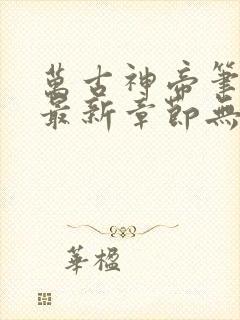 萬古神帝筆
最新章節無
華楹